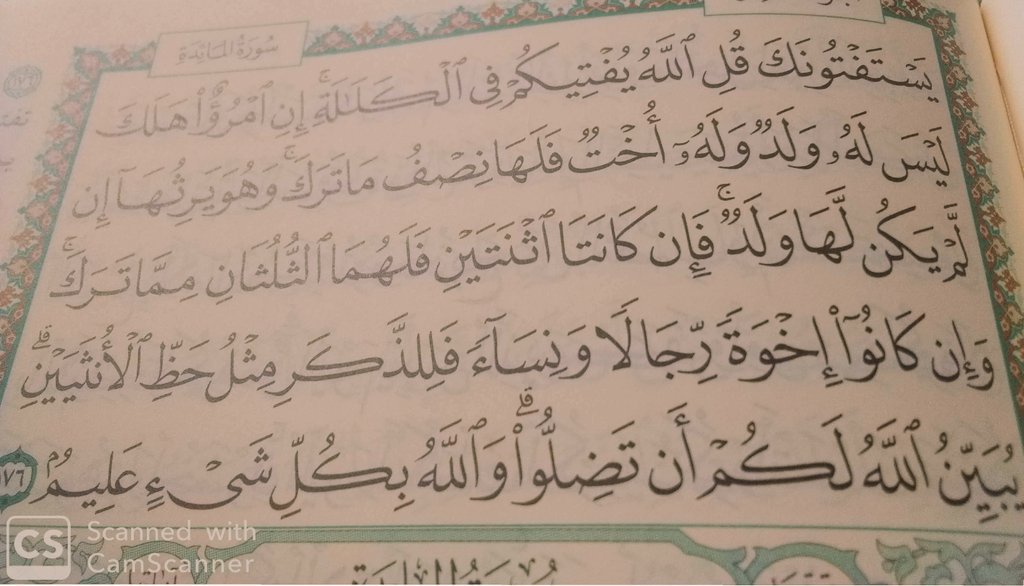 سُورَةُ المَائِدَةِ
يَسۡتَفۡتُونَكَ قُلِ ٱللَّهُ يُفۡتِيكُمۡ فِي ٱلۡكَلَٰلَةِۚ إِنِ ٱمۡرُؤٌاْ هَلَكَ
لَيۡسَ لَهُۥ وَلَدٞ وَلَهُۥٓ أُخۡتٞ فَلَهَا نِصۡفُ مَا تَرَكَۚ وَهُوَ يَرِثُهَآ إِن
لَّمۡ يَكُن لَّهَا وَلَدٞۚ فَإِن كَانَتَا ٱثۡنَتَيۡنِ فَلَهُمَا ٱلثُّلُثَانِ مِمَّا تَرَكَۚ
وَإِن كَانُوٓاْ إِخۡوَةٗ رِّجَالٗا وَنِسَآءٗ فَلِلذَّكَرِ مِثۡلُ حَظِّ ٱلۡأُنثَيَيۡنِۗ
يُبَيِّنُ ٱللَّهُ لَكُمۡ أَن تَضِلُّواْۗ وَٱللَّهُ بِكُلِّ شَيۡءٍ عَلِيمُۢ ١٧٦
CS Scanned with
CamScanner